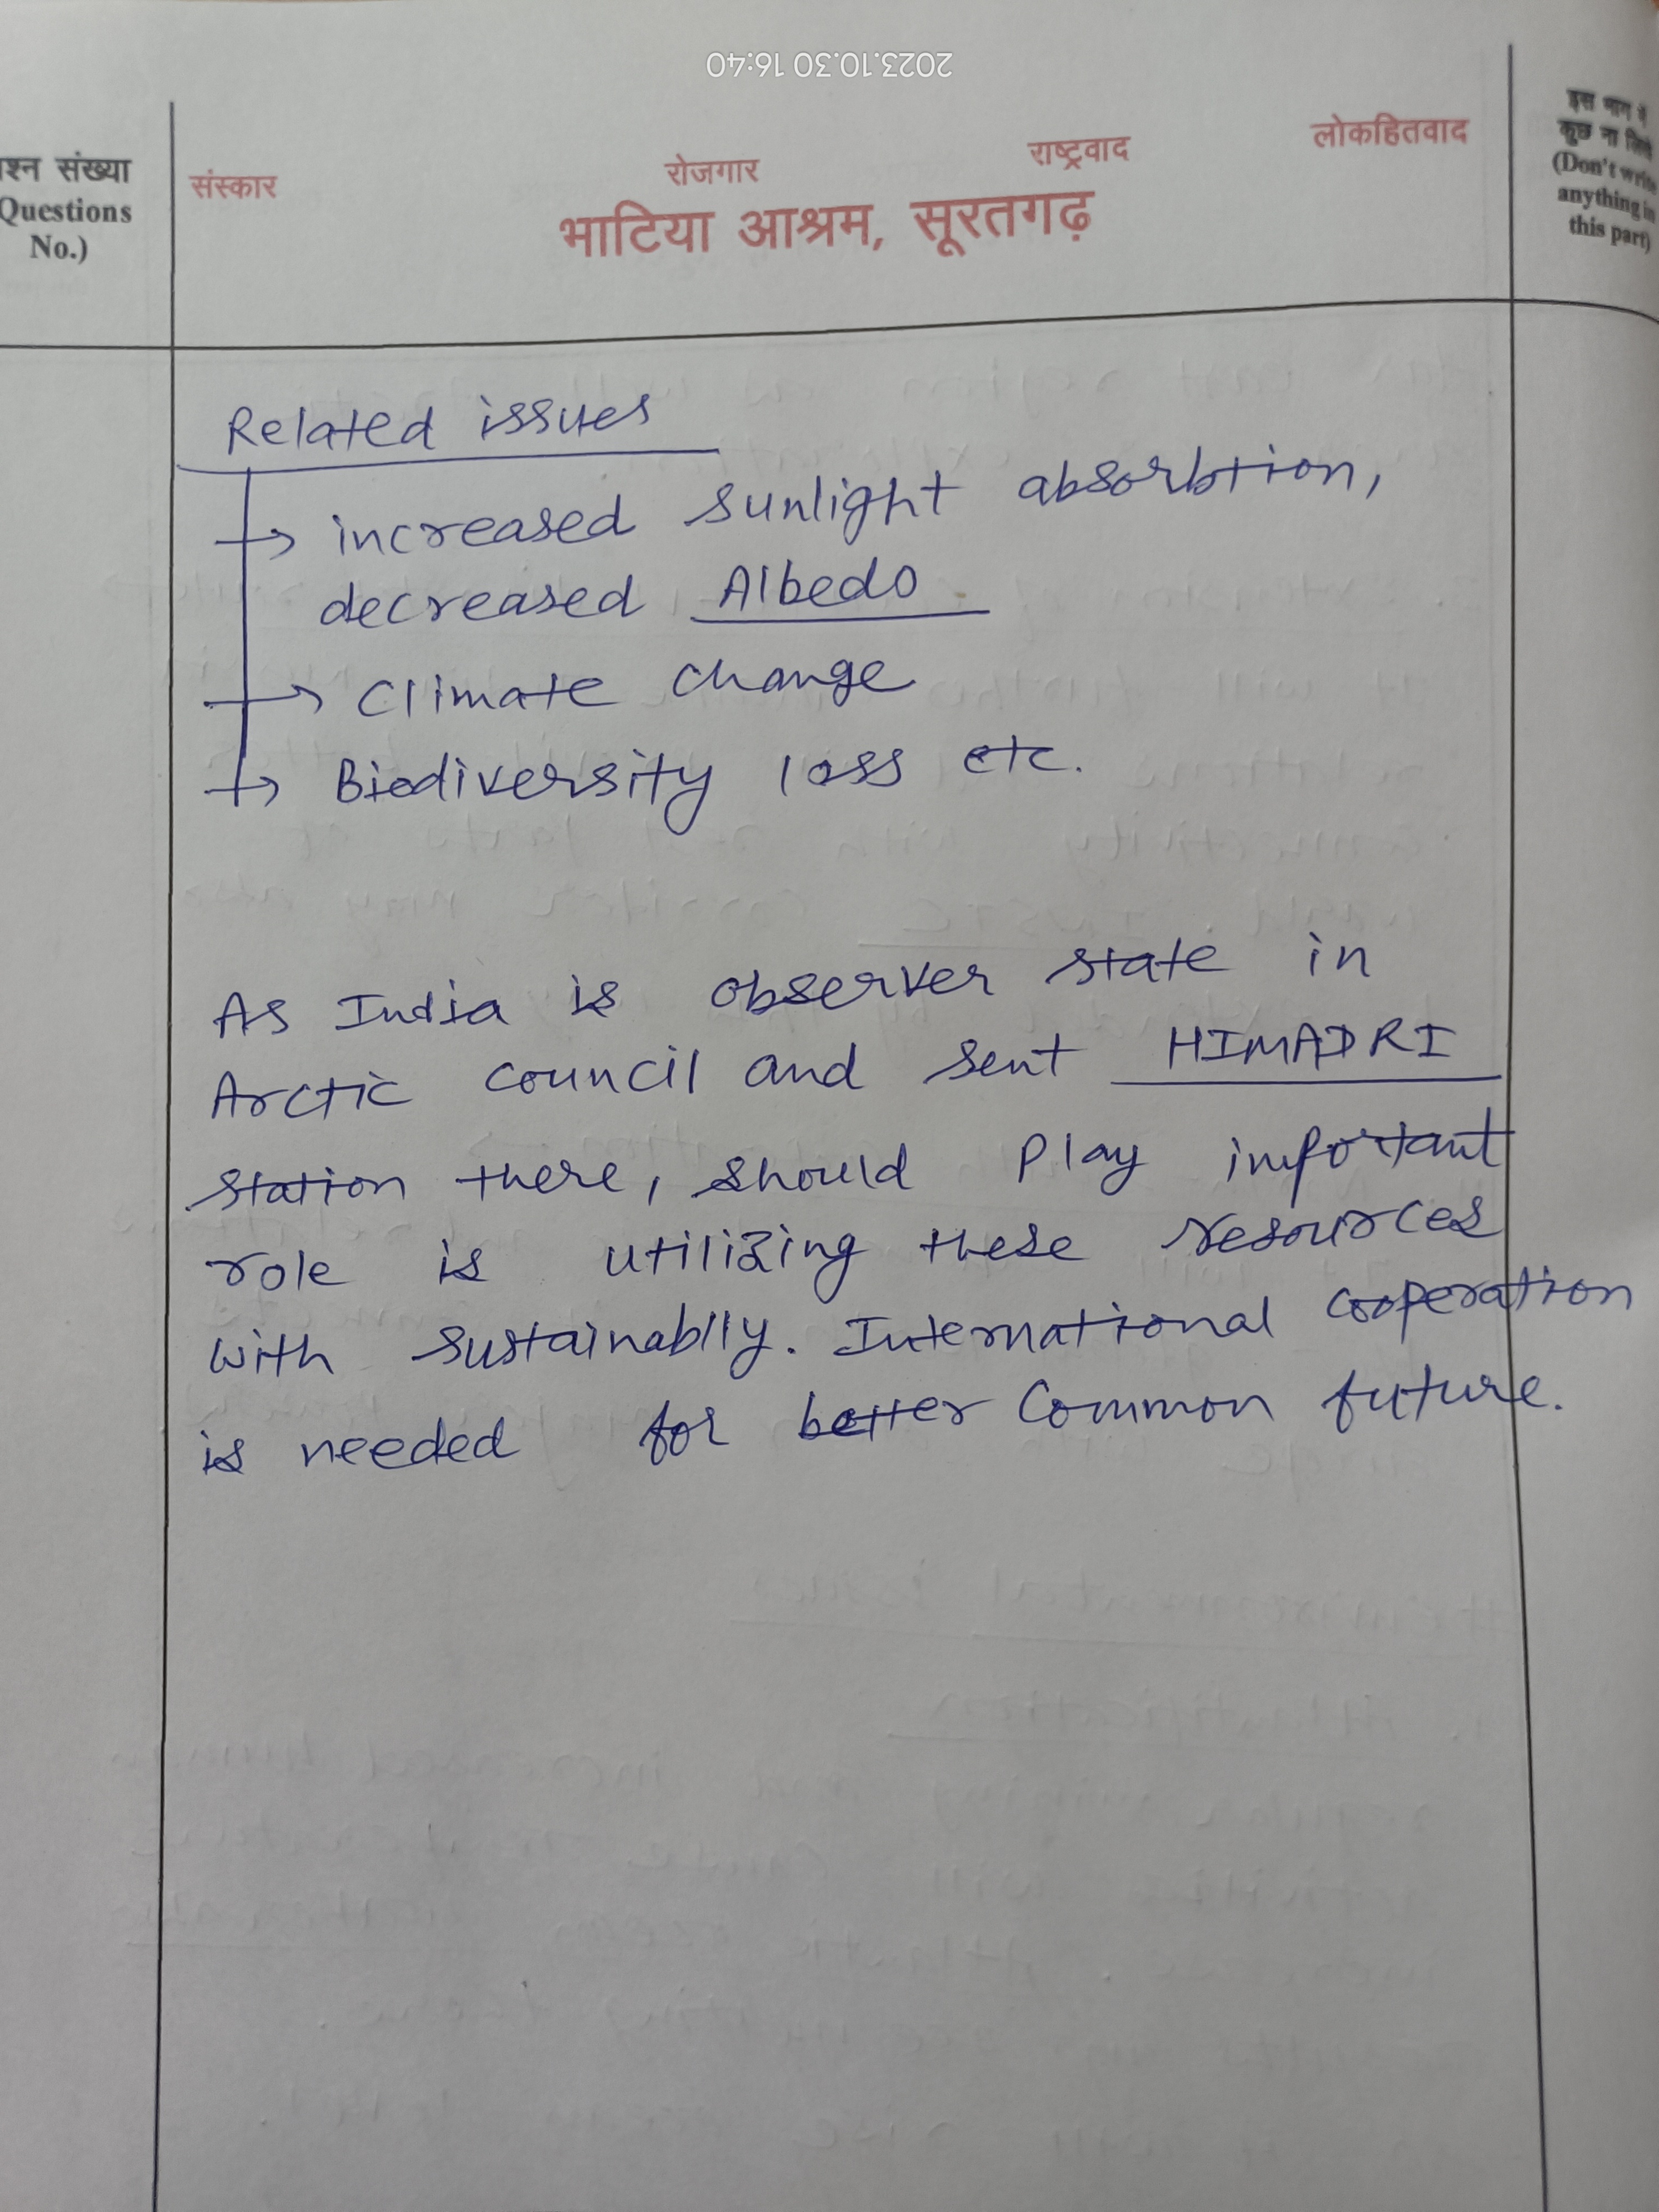 2023.10.30 16:40
प्रश्न संख्या
Questions
No.)
संस्कार रोजगार राष्ट्रवाद लोकहितवाद
भाटिया आश्रम, सूरतगढ़
इस भाग में
कुछ ना लिखें
(Don't write
anything in
this part)
Related issues
→ increased sunlight absorbtion,
decreased Albedo
→ Climate change
→ Biodiversity loss etc.
As India is observer state in
Arctic council and sent HIMADRI
station there, should play important
role is utilizing these resources
with sustainablly. International cooperation
is needed for better common future.